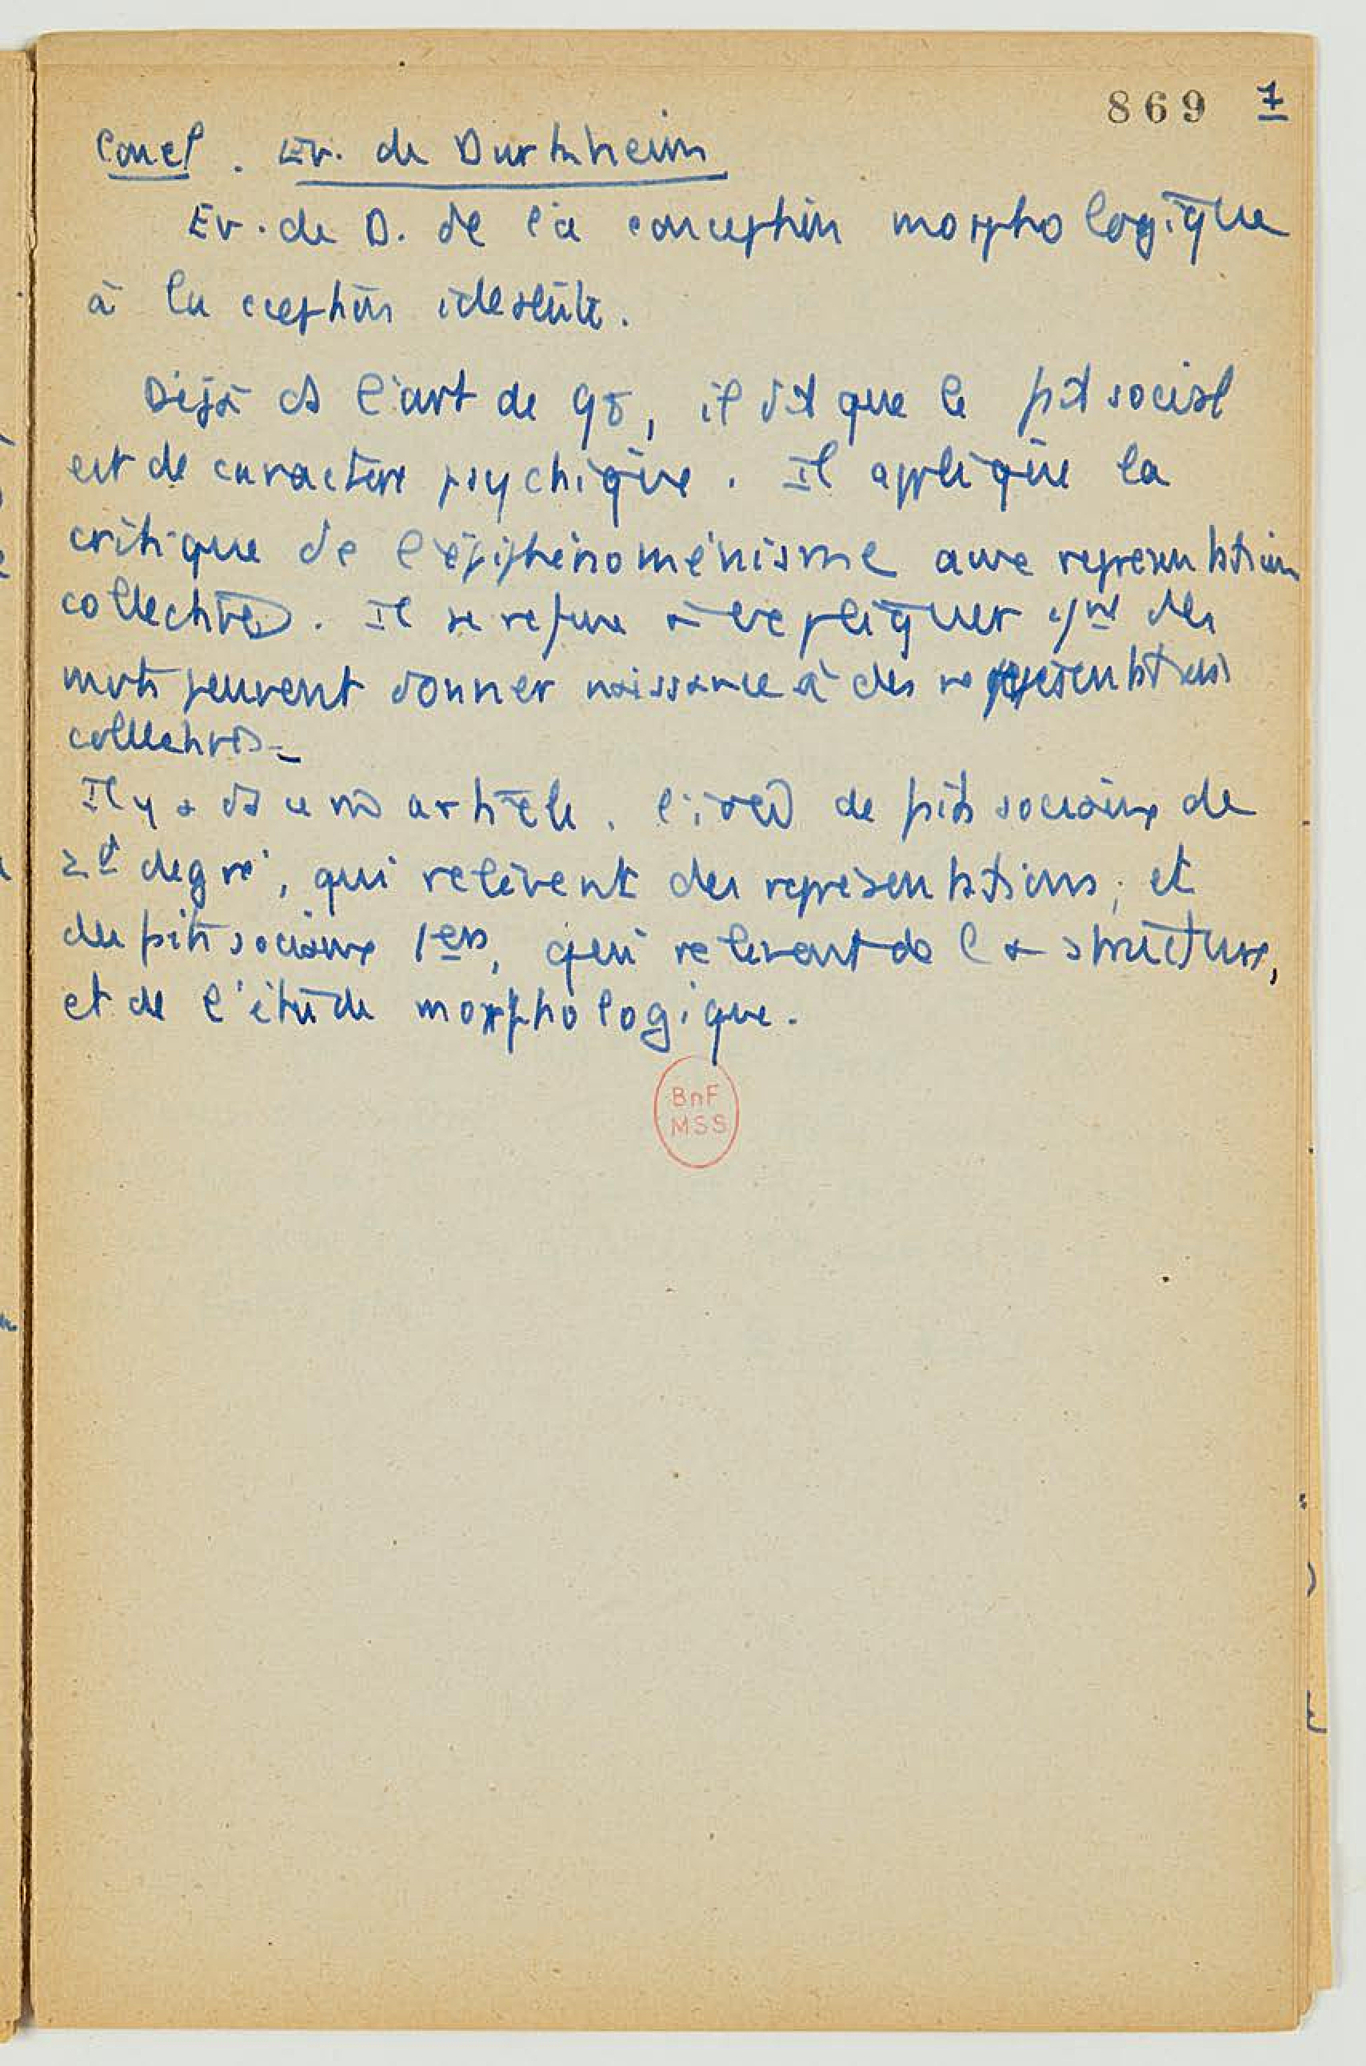 869 7
Concl. Ev. de Durkheim
Ev. de D. de la conception morphologique
à la cception idéaliste.
Déjà ds l'art de 98, il dit que le pht social
est de caractère psychique. Il applique la
critique de l'épiphénoménisme aux représentations
collectives. Il se refuse à expliquer des
mots peuvent donner naissance à des représentations
collectives.
Il y a ds un article. l'idée de phts sociaux de
2d degré, qui relèvent des représentations, et
des phts sociaux 1ers, qui relèvent de la structure,
et de l'étude morphologique.
BnF
MSS